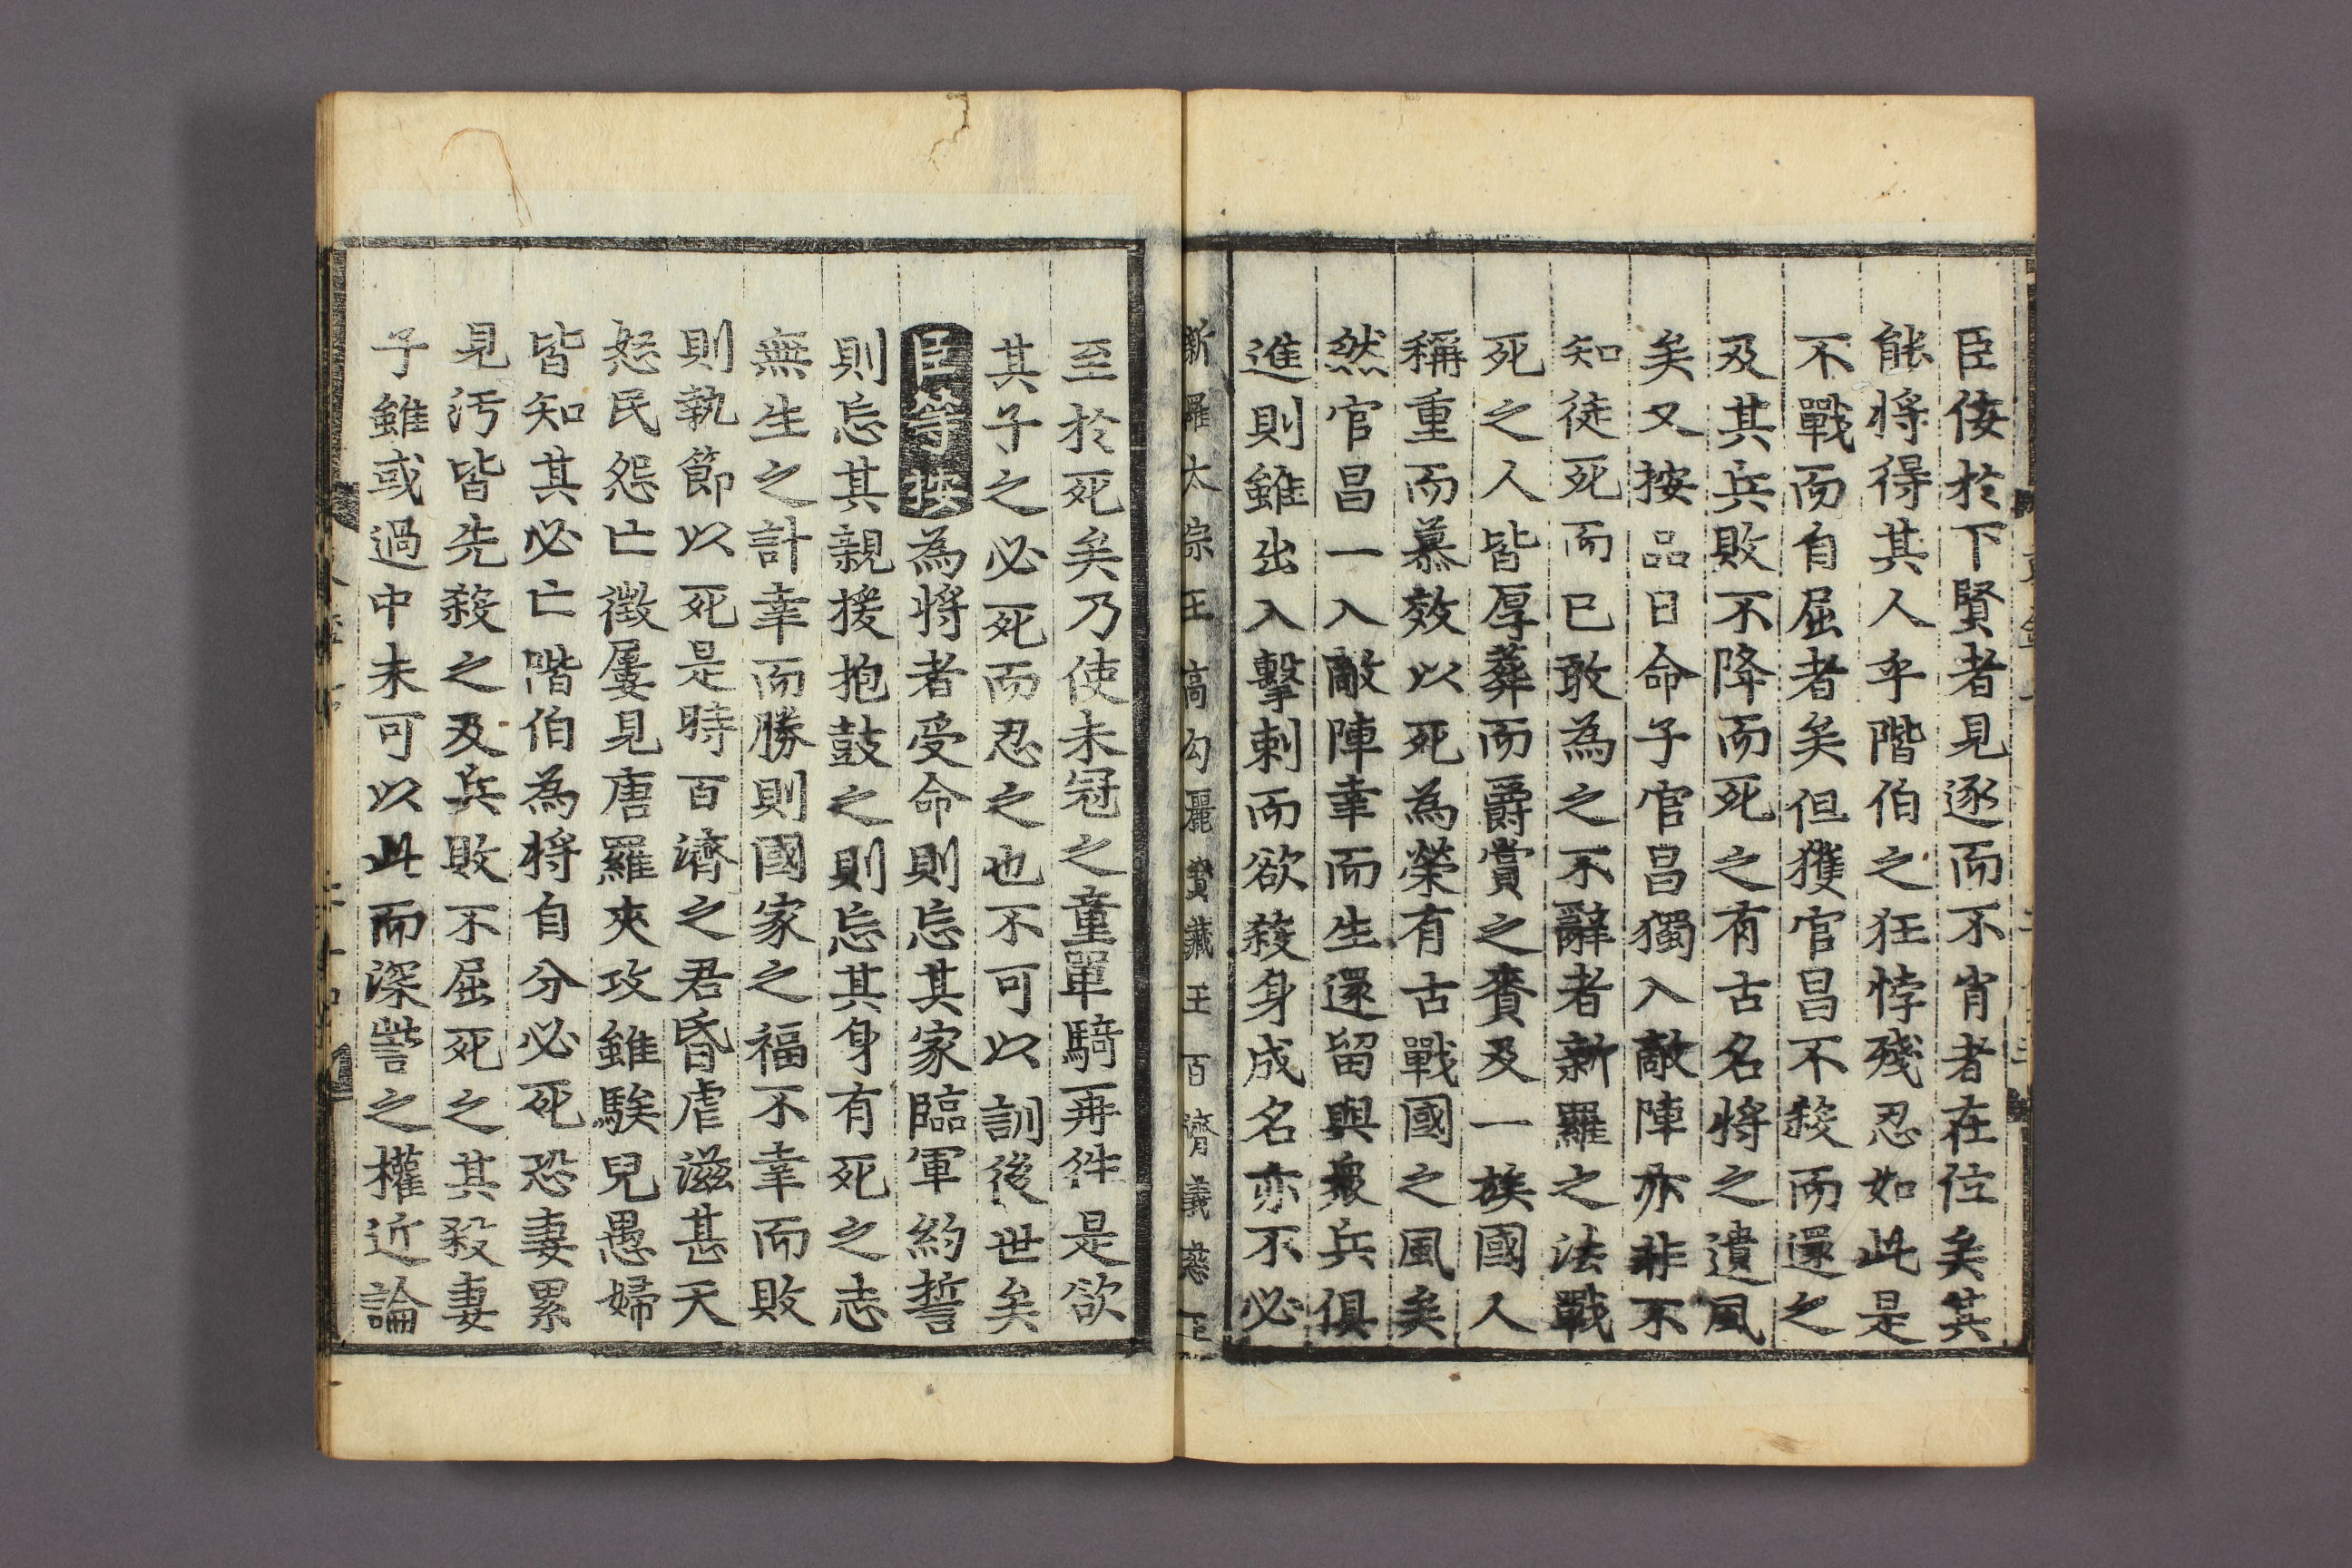 臣佞於下賢者見逐而不肖者在位矣其
能將得其人乎階伯之狂悖殘忍如此是
不戰而自屈者矣但獲官昌不殺而還之
及其兵敗不降而死之有古名將之遺風
矣又按品日命子官昌獨入敵陣亦非不
知徒死而已敢為之不辭者新羅之法戰
死之人皆厚葬而爵賞之賚及一族國人
稱重而慕效以死為榮有古戰國之風矣
然官昌一入敵陣幸而生還留與衆兵俱
進則雖出入擊刺而欲殺身成名亦不必
新羅太宗王 高勾麗寶藏王 百濟義慈王
至於死矣乃使未冠之童單騎再徃是欲
其子之必死而忍之也不可以訓後世矣
臣等按為將者受命則忘其家臨軍約誓
則忘其親援抱鼓之則忘其身有死之志
無生之計幸而勝則國家之福不幸而敗
則執節以死是時百濟之君昏虐滋甚天
怒民怨亡徵屢見唐羅夾攻雖騃兒愚婦
皆知其必亡階伯為將自分必死恐妻累
見汚皆先殺之及兵敗不屈死之其殺妻
子雖或過中未可以此而深訾之權近論